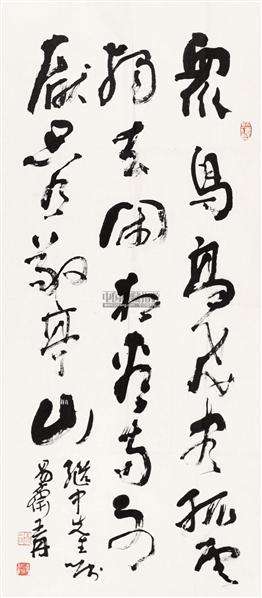 眾鳥高飛盡孤雲
獨去閑相看兩不
厭只有敬亭山
繼中先生囑